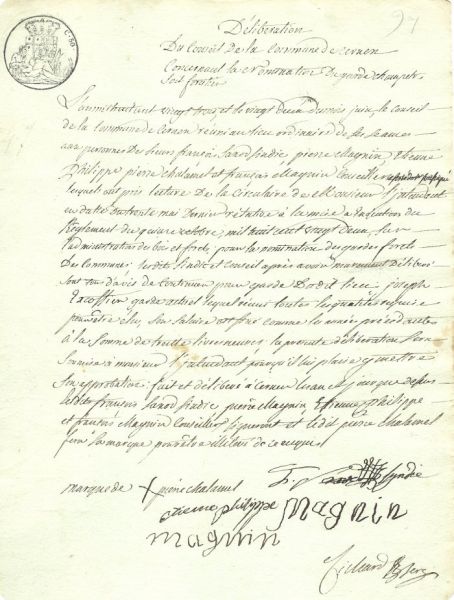 97
C. 50
Délibération
Du Conseil de la Commune de Cernex
Concernant la Nomination de garde champetre
et forestier
L'an mil huit cent vingt trois et le vingt deux du mois juin, le Conseil
de la Commune de Cernex réuni au lieu ordinaire de ses séances
aux personnes des sieurs françois sindic, pierre Magnin, Etienne
Philippe, pierre Chatamel et françois Magnin Conseillers
lesquels ont pris lecture De la Circulaire de Monsieur l'
en datte du trente mai Dernier relative à la mise à éxécution du
Reglement du quinze octobre mil huit cent vingt Deux, sur
l'administration des bois et forets, pour la nomination des gardes forets
Des Communes; les dits sindic et Conseil après avoir murement délibéré
sont d'avis de Continuer pour garde Dudit lieu, joseph
Excoffier garde actuel lequel réunit toutes les qualités requises
pour être elu, Son Salaire est fixé comme les années précédentes
à la Somme de trente livres neuves; la présente délibération sera
Soumise à monsieur l' pour qu'il lui plaise y mettre
son approbation: fait et délibéré à Cernex l'an et jour que dessus
les dits françois sindic, pierre Magnin, Etienne philippe
et françois Magnin Conseillers signeront et ledit pierre Chatamel
fera sa marque pour être illitéré de ce enquis
marque de X pierre chatamel
Syndic
etienne philippe
magnin
magnin